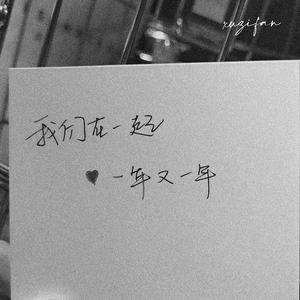 xuzifan
我们在一起
♥一年又一年